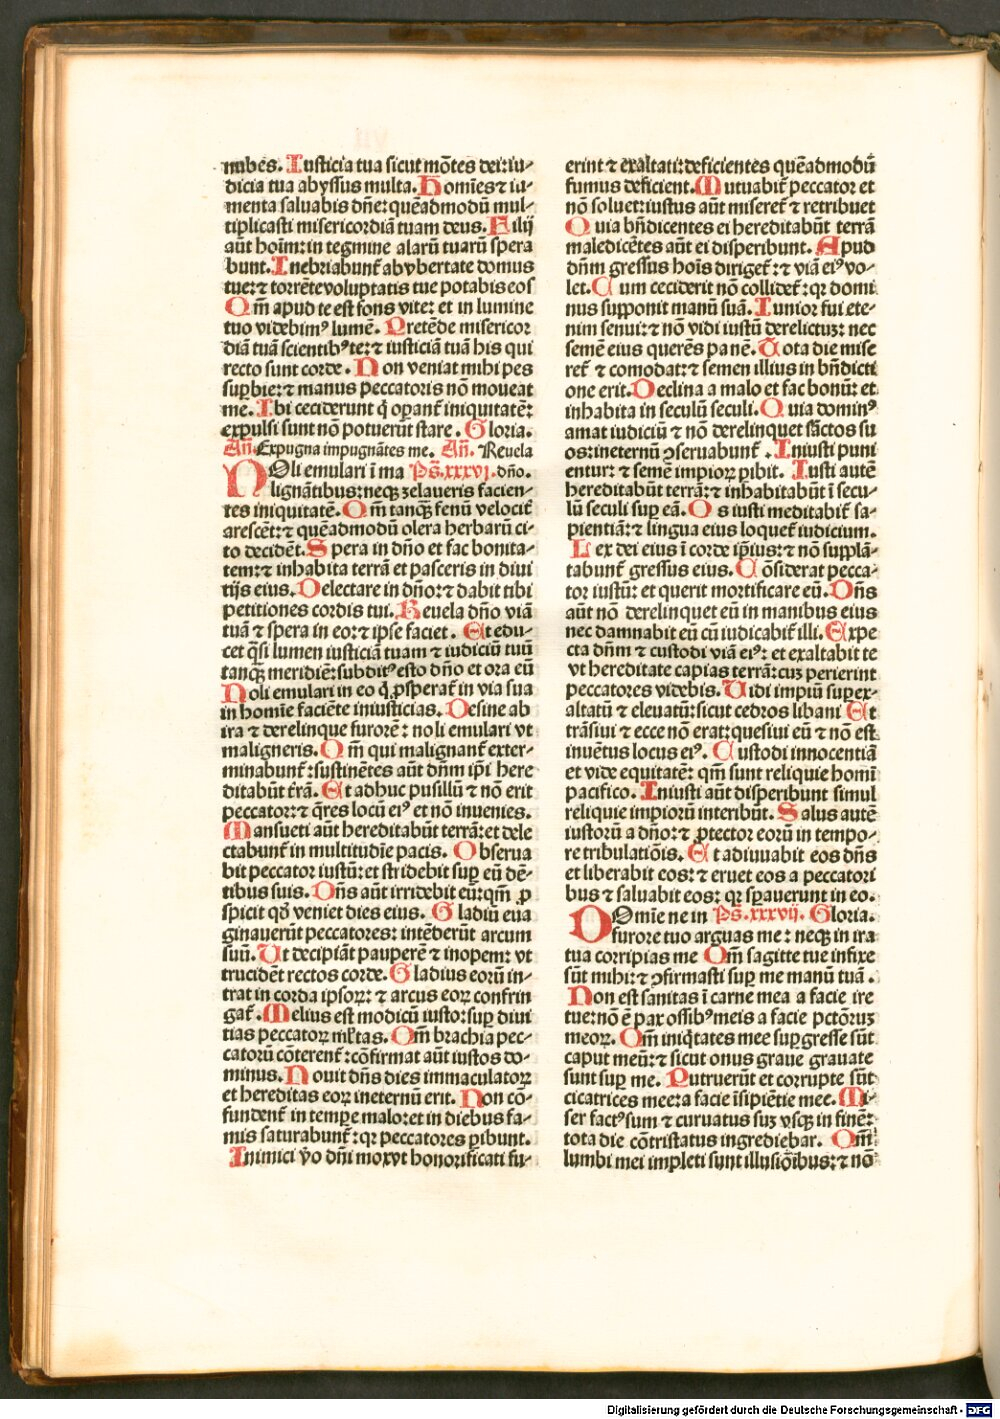 nubes. Iusticia tua sicut mōtes dei: iu-
dicia tua abyssus multa. Homīes ⁊ iu-
menta saluabis dn̄e: quēadmodū mul-
tiplicasti misericordiā tuam deus. Filij
aūt hoīm: in tegmine alarū tuarū spera
bunt. Inebriabunt̄ ab vbertate domus
tue: ⁊ torrēte voluptatis tue potabis eos
Qm̄ apud te est fons vite: et in lumine
tuo videbimꝰ lumē. Pretēde misericor
diā tuā scientibꝰ te: ⁊ iusticiā tuā his qui
recto sunt corde. Non veniat mihi pes
suꝑbie: ⁊ manus peccatoris nō moueat
me. Ibi ceciderunt q̇ oꝑant̄ iniquitatē:
expulsi sunt nō potuerūt stare. Gloria.
An̄. Expugna impugnātes me. An̄. Reuela
NOli emulari ī ma Ps̄. xxxvj. dn̄o.
lignātibus: neqꝫ zelaueris facien-
tes iniquitatē. Qm̄ tanqꝫ̄ fenū velocit̄
arescēt: ⁊ quēadmodū olera herbarū ci-
to decidēt. Spera in dn̄o et fac bonita-
tem: ⁊ inhabita terrā et pasceris in diui
tijs eius. Delectare in dn̄o: ⁊ dabit tibi
petitiones cordis tui. Reuela dn̄o viā
tuā ⁊ spera in eo: ⁊ ipse faciet. Et edu-
cet q̄si lumen iusticiā tuam ⁊ iudiciū tuū
tanqꝫ̄ meridiē: subditꝰ esto dn̄o et ora eū
Noli emulari in eo q̇ ꝓsperat̄ in via sua
in homīe faciēte iniusticias. Desine ab
ira ⁊ derelinque furorē: noli emulari vt
maligneris. Qm̄ qui malignant̄ exter-
minabunt̄: sustinētes aūt dn̄m ip̄i here
ditabūt t̄rā. Et adhuc pusillū ⁊ nō erit
peccator: ⁊ q̄res locū eiꝰ et nō inuenies.
Mansueti aūt hereditabūt terrā: et dele
ctabunt̄ in multitudīe pacis. Obserua
bit peccator iustū: et stridebit suꝑ eū dē-
tibus suis. Dn̄s aūt irridebit eū: qm̄ ꝓ
spicit qd̓ veniet dies eius. Gladiū eua
ginauerūt peccatores: intēderūt arcum
suū. Ut decipiāt pauperē ⁊ inopem: vt
trucidēt rectos corde. Gladius eorū in-
trat in corda ipsoꝝ: ⁊ arcus eoꝝ confrin
gat̄. Melius est modicū iusto: suꝑ diui
tias peccatoꝝ ml̓tas. Qm̄ brachia pec-
catorū cōterent̄: cōfirmat aūt iustos do-
minus. Nouit dn̄s dies immaculatoꝝ
et hereditas eoꝝ ineternū erit. Non cō-
fundent̄ in tempe malo: et in diebus fa-
mis saturabunt̄: qꝛ peccatores ꝑibunt.
Inimici ṽo dn̄i mox vt honorificati fu-
erint ⁊ exaltati: deficientes quēadmodū
fumus deficient. Mutuabit̄ peccator et
nō soluet: iustus aūt miseret̄ ⁊ retribuet
Quia bn̄dicentes ei hereditabūt terrā
maledicētes aūt ei disperibunt. Apud
dn̄m gressus hoīs diriget̄: ⁊ viā eiꝰ vo-
let. Cum ceciderit nō collidet̄: qꝛ domi
nus supponit manū suā. Iunior fui ete-
nim senui: ⁊ nō vidi iustū derelictuꝫ: nec
semē eius querēs panē. Tota die mise
ret̄ ⁊ comodat: ⁊ semen illius in bn̄dicti
one erit. Declina a malo et fac bonū: et
inhabita in seculū seculi. Quia dominꝰ
amat iudiciū ⁊ nō derelinquet sāctos su
os: ineternū ꝯseruabunt̄. Iniusti puni
entur: ⁊ semē impioꝝ ꝑibit. Iusti autē
hereditabūt terrā: ⁊ inhabitabūt ī secu-
lū seculi suꝑ eā. Os iusti meditabit̄ sa-
pientiā: ⁊ lingua eius loquet̄ iudicium.
Lex dei eius ī corde ip̄ius: ⁊ nō supplā-
tabunt̄ gressus eius. Cōsiderat pecca-
tor iustū: et querit mortificare eū. Dn̄s
aūt nō derelinquet eū in manibus eius
nec damnabit eū cū iudicabit̄ illi. Expe
cta dn̄m ⁊ custodi viā eiꝰ: et exaltabit te
vt hereditate capias terrā: cuꝫ perierint
peccatores videbis. Uidi impiū suꝑex-
altatū ⁊ eleuatū: sicut cedros libani Et
trāsiui ⁊ ecce nō erat: quesiui eū ⁊ nō est
inuētus locus eiꝰ. Custodi innocentiā
et vide equitatē: qm̄ sunt reliquie homī
pacifico. Iniusti aūt disperibunt simul
reliquie impiorū interibūt. Salus autē
iustorū a dn̄o: ⁊ ꝓtector eorū in tempo-
re tribulatiōis. Et adiuuabit eos dn̄s
et liberabit eos: ⁊ eruet eos a peccatori
bus ⁊ saluabit eos: qꝛ sꝑauerunt in eo.
DOmīe ne in Ps̄. xxxvij. Gloria.
furore tuo arguas me: neqꝫ in ira
tua corripias me Qm̄ sagitte tue infixe
sūt mihi: ⁊ ꝯfirmasti suꝑ me manū tuā.
Non est sanitas ī carne mea a facie ire
tue: nō ē pax ossibꝰ meis a facie pctōruꝫ
meoꝝ. Qm̄ iniq̇tates mee suꝑgresse sūt
caput meū: ⁊ sicut onus graue grauate
sunt suꝑ me. Putruerūt et corrupte sūt
cicatrices mee: a facie īsipiētie mee. Mi-
ser factꝰ sum ⁊ curuatus suꝫ vsqꝫ in finē:
tota die cōtristatus ingrediebar. Qm̄
lumbi mei impleti sunt illusiōibus: ⁊ nō
Digitalisierung gefördert durch die Deutsche Forschungsgemeinschaft - DFG